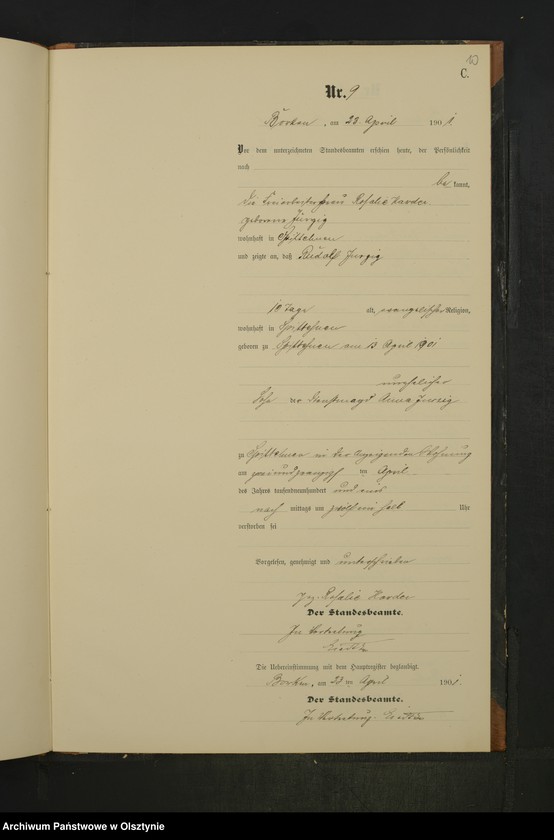 10
C.
Nr. 9
Borken, am 23. April 1901.
Vor dem unterzeichneten Standesbeamten erschien heute, der Persönlichkeit
nach
be kannt,
die Rosalie Harder
geborene Jurgig
wohnhaft in
und zeigte an, daß Rudolf Jurgig
10 Tage alt, evangelischer Religion,
wohnhaft in
geboren zu am 13 April 1901
unehelicher
Sohn der Dienstmagd Anna Jurgig
zu in der Wohnung
am zweiundzwanzigsten April
des Jahres tausendneunhundert und eins
nach mittags um zwölf ein halb Uhr
verstorben sei
Vorgelesen, genehmigt und unterschrieben
gez. Rosalie Harder
Der Standesbeamte.
In Vertretung
Die Uebereinstimmung mit dem Hauptregister beglaubigt.
Borken, am 23 ten April 1901.
Der Standesbeamte.
In Vertretung.
Archiwum Państwowe w Olsztynie